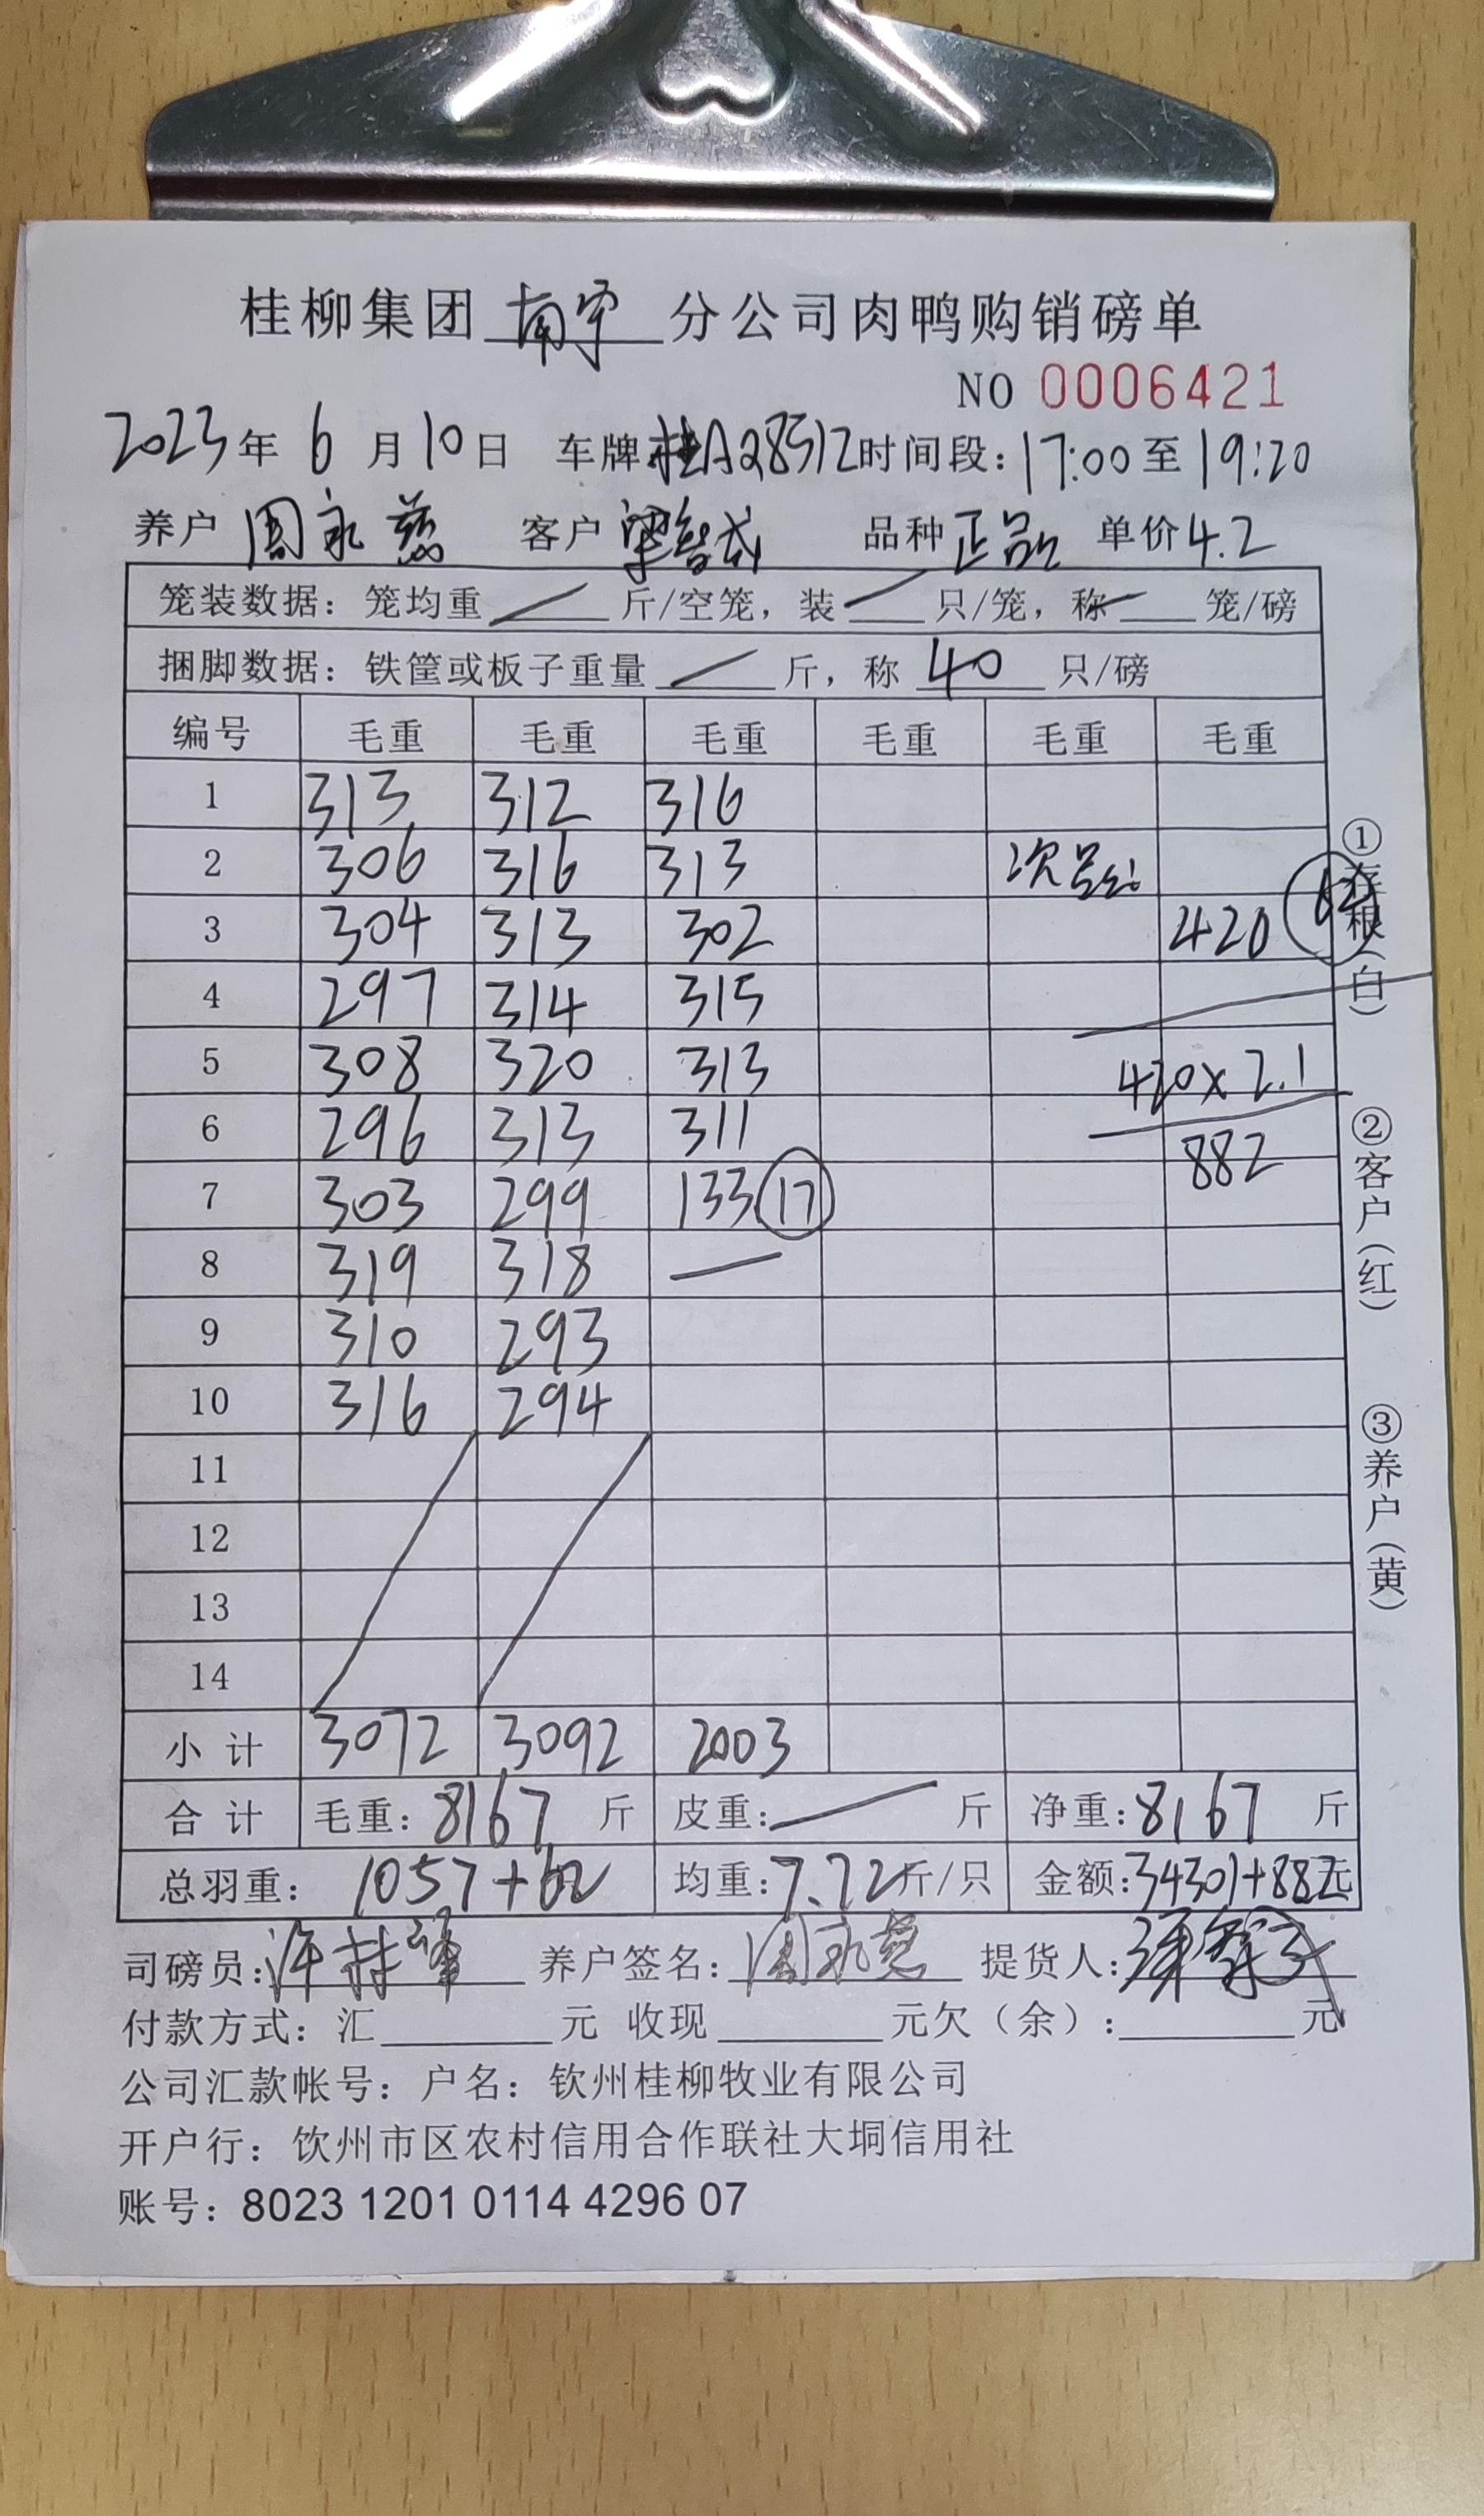 桂柳集团 南宁 分公司肉鸭购销磅单
NO 0006421
2023年 6 月 10 日 车牌 桂A28512 时间段: 17:00 至 19:20
养户 周永慈 客户 梁智武 品种 正品 单价 4.2
笼装数据: 笼均重 / 斤/空笼, 装 / 只/笼, 称 / 笼/磅
捆脚数据: 铁筐或板子重量 / 斤, 称 40 只/磅
编号 毛重 毛重 毛重 毛重 毛重 毛重
1 313 312 316
2 306 316 313 次品
3 304 313 302 420 62
4 297 314 315
5 308 320 313 420×2.1
6 296 313 311 882
7 303 299 133 17
8 319 318 —
9 310 293
10 316 294
11
12
13
14
小计 3072 3092 2003
合计 毛重: 8167 斤 皮重: / 斤 净重: 8167 斤
总羽重: 1057+62 均重: 7.72 斤/只 金额: 34301+882 元
司磅员: 养户签名: 周永慈 提货人:
付款方式: 汇______元 收现______元欠（余）:______元
公司汇款帐号: 户名: 钦州桂柳牧业有限公司
开户行: 饮州市区农村信用合作联社大垌信用社
账号: 8023 1201 0114 4296 07
①存根（白）
②客户（红）
③养户（黄）